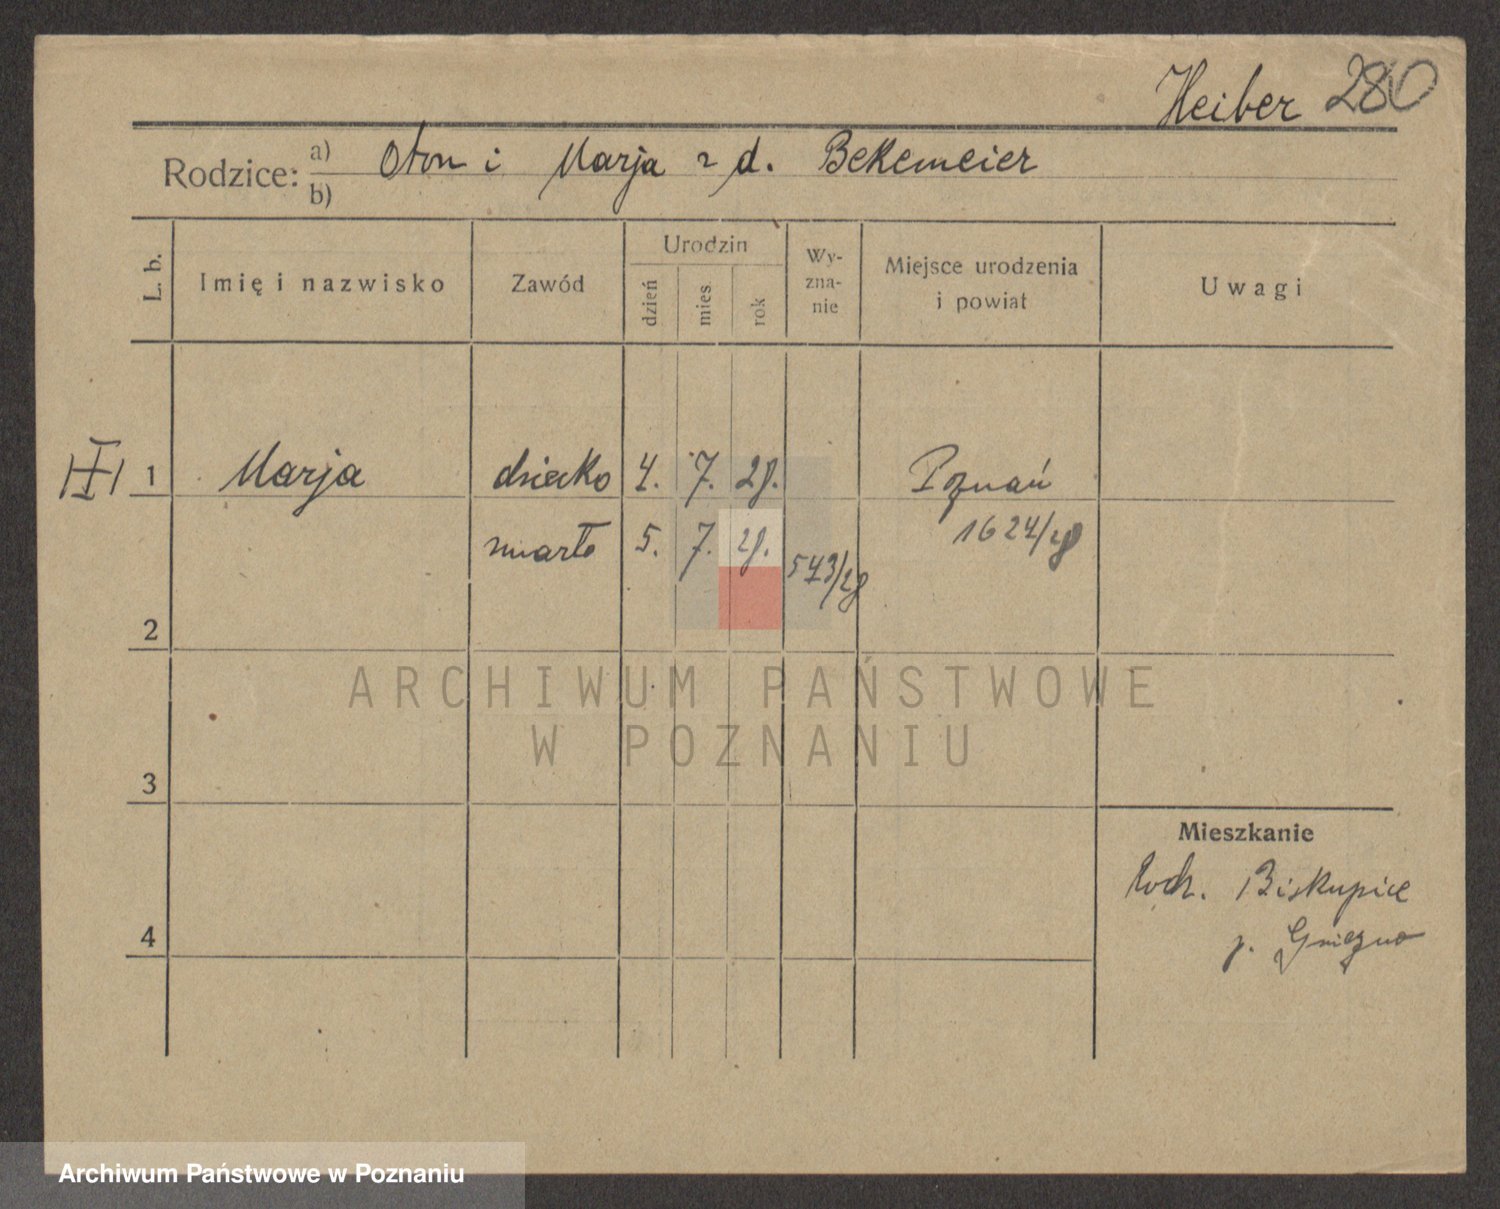 Heiber 280
Rodzice: a) Oton i Marja z d. Bekemeier
b)
L. b. Imię i nazwisko Zawód Urodzin dzień mies rok Wy-zna-nie Miejsce urodzenia i powiat Uwagi
III 1 Marja dziecko 4. 7. 28. Poznań
zmarło 5. 7. 28. 573/28 1624/28
2
ARCHIWUM PAŃSTWOWE
W POZNANIU
3
Mieszkanie
Biskupice
4
p. Gniezno
Archiwum Państwowe w Poznaniu